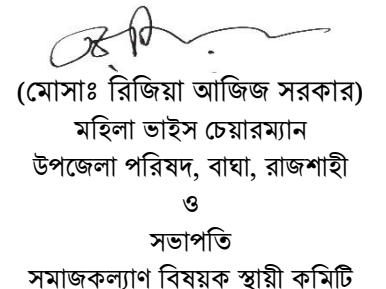 (মোসাঃ রিজিয়া আজিজ সরকার)
মহিলা ভাইস চেয়ারম্যান
উপজেলা পরিষদ, বাঘা, রাজশাহী
ও
সভাপতি
সমাজকল্যাণ বিষয়ক স্থায়ী কমিটি